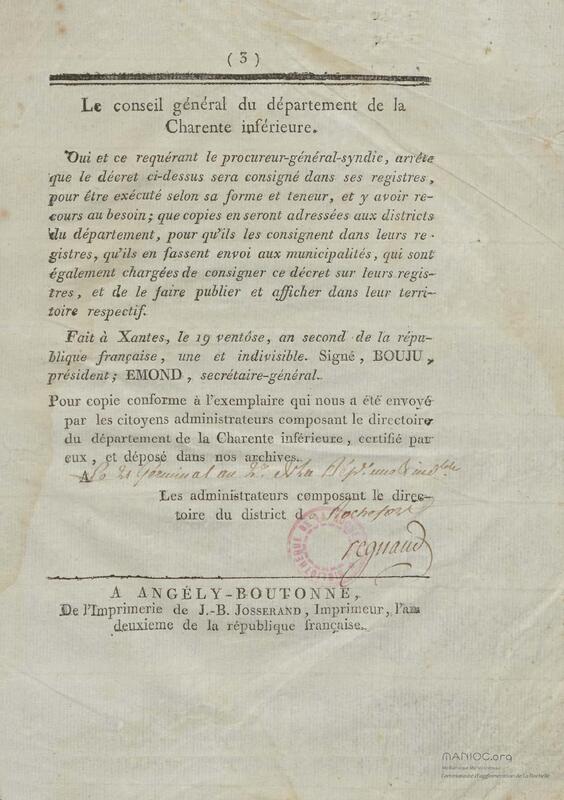 ( 3 )
Le conseil général du département de la
Charente inférieure.
Oui et ce requérant le procureur-général-syndic, arrête
que le décret ci-dessus sera consigné dans ses registres,
pour être exécuté selon sa forme et teneur, et y avoir re-
cours au besoin; que copies en seront adressées aux districts
du département, pour qu'ils les consignent dans leurs re-
gistres, qu'ils en fassent envoi aux municipalités, qui sont
également chargées de consigner ce décret sur leurs regis-
tres, et de le faire publier et afficher dans leur terri-
toire respectif.
Fait à Xantes, le 19 ventôse, an second de la répu-
blique française, une et indivisible. Signé, BOUJU,
président; EMOND, secrétaire-général.
Pour copie conforme à l'exemplaire qui nous a été envoyé
par les citoyens administrateurs composant le directoire
du département de la Charente inférieure, certifié par
eux, et déposé dans nos archives.
A Le 21 Germinal an 2e. de la Rép. une &
Les administrateurs composant le direc-
toire du district de Rochefort
regnaud
A ANGÉLY-BOUTONNE,
De l'Imprimerie de J.-B. JOSSERAND, Imprimeur, l'an
deuxieme de la république française.
MANIOC.org
Communauté d'agglomération de La Rochelle